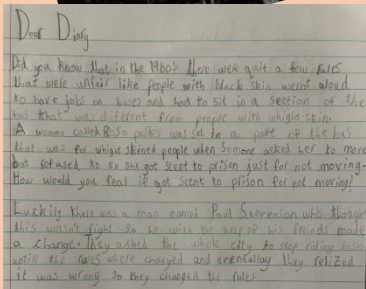 Dear Diary
Did you know that in the 1960s there were quit a few rules
that were unfair like people with black skin wernt aloud
to have jobs on buses and had to sit in a section of the
bus that was different from people with whight-skin.
A woman called Rosa parkes was sat in a part of the bus
that was for whight skined people when somone asked her to move
but refused to so she got scent to prison just for not moving.
How would you feal if got scent to prison for not moving?
Luckily there was a man named Paul Stevenson who thought
this wasn't right so he with the help of his freinds made
a change. They asked the whole city to stop riding buses
untill the rules where changed and eventullay they relized
it was wrong so they changed the rules